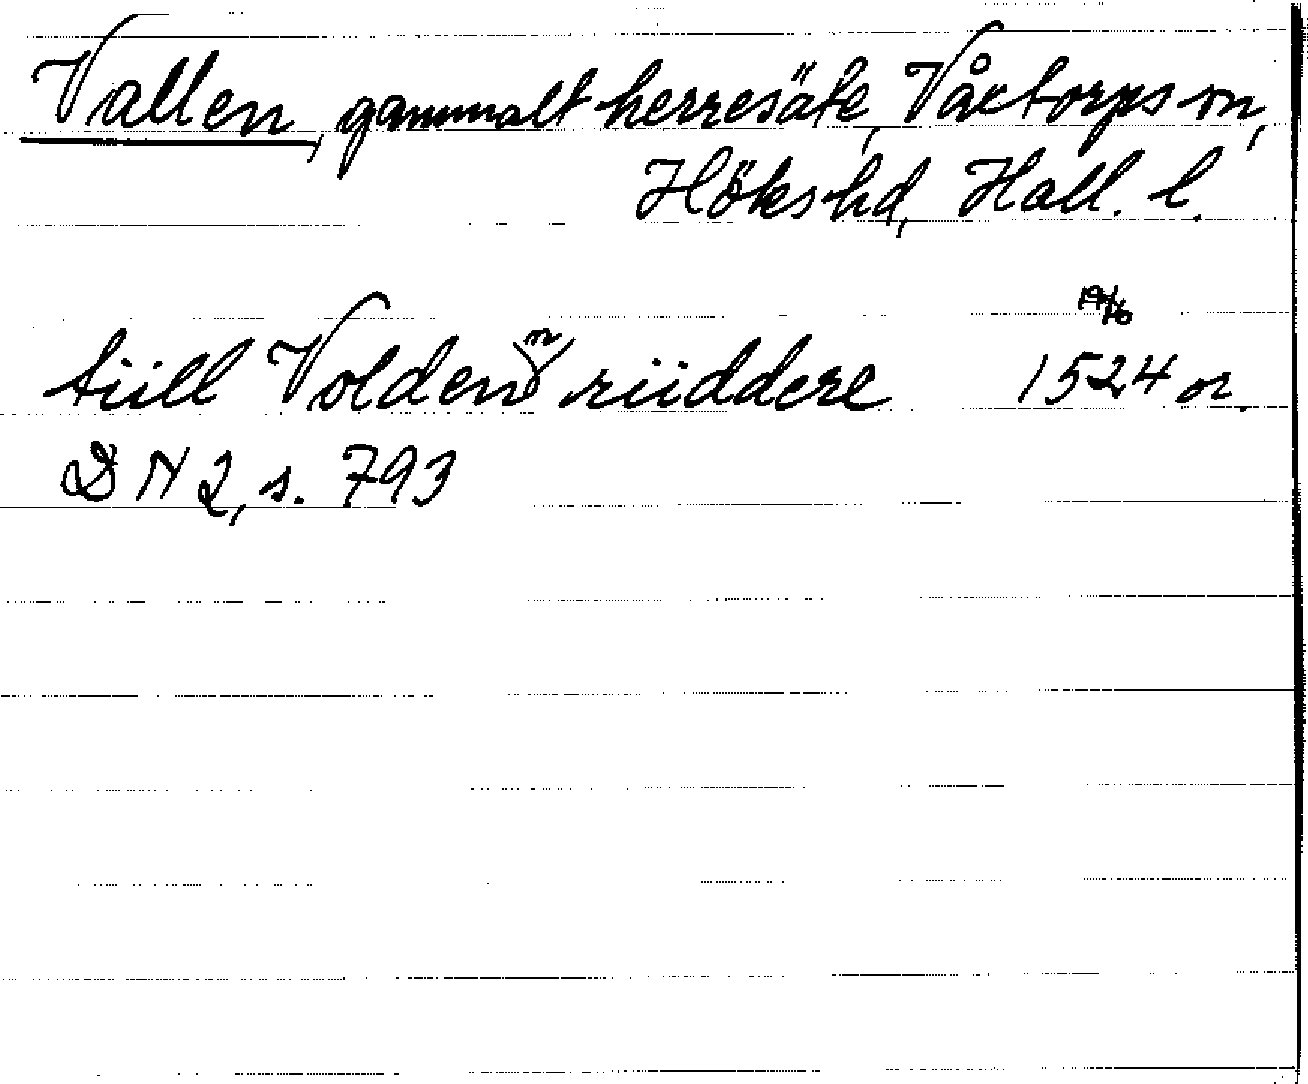 Vallen, gammalt herresäte, Våxtorps sn,
Höks hd, Hall. l.
tiill Volden riiddere 1524 or.
DN 2, s. 793